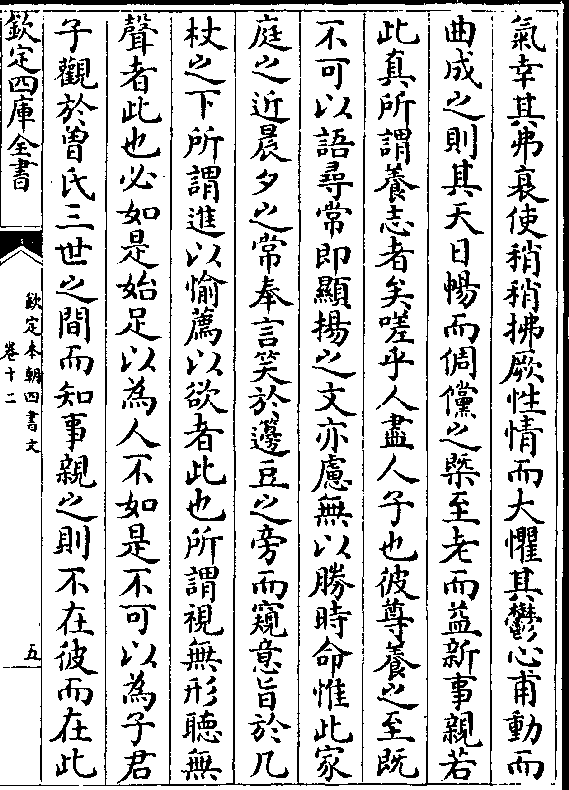 氣幸其弗衰使稍稍拂厥性情而大懼其鬱心甫動而
曲成之則其天日暢而倜儻之槩至老而益新事親若
此真所謂養志者矣嗟乎人盡人子也彼尊養之至既
不可以語尋常即顯揚之文亦慮無以勝時命惟此家
庭之近晨夕之常奉言笑於籩豆之旁而窺意旨於几
杖之下所謂進以愉薦以欲者此也所謂視無形聽無
聲者此也必如是始足以為人不如是不可以為子君
子觀於曾氏三世之間而知事親之則不在彼而在此
欽定四庫全書
欽定本朝四書文
卷十二
五